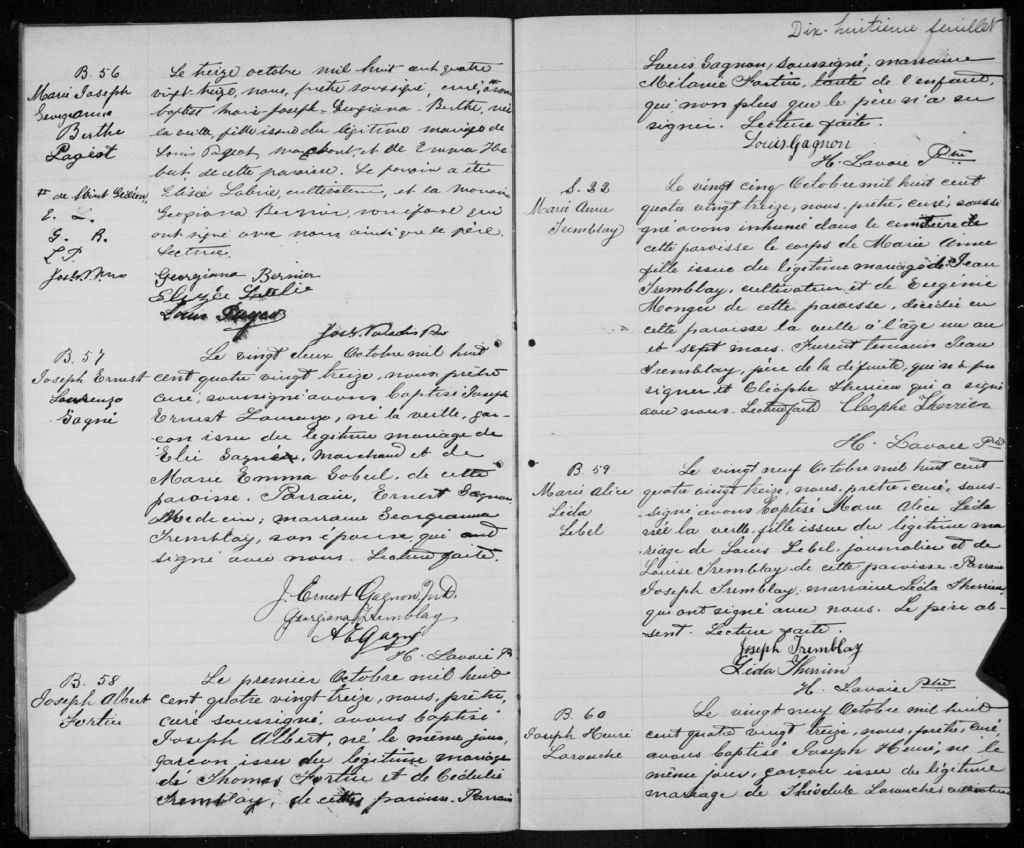 B. 56
Marie Joseph
Georgianna
Berthe
Pageot
# de Saint Gédéon,
E. L.
G. B.
L. P.
Le treize octobre mil huit cent quatre
vingt treize, nous, prêtre soussigné, curé, # avons
baptisé Marie-Joseph-Georgiana-Berthe, née
la veille, fille issue du légitime mariage de
Louis Pageot, marchand, et de Emma He-
bert, de cette paroisse. Le parrain a été
Elisée Labrie, cultivateur, et la marraine
Georgiana Bernier, son épouse qui
ont signé avec nous ainsi que le père.
Lecture.
Georgiana Bernier
Elizée Labrie
Louis Pageau
B. 57
Joseph Ernest
Laurenzo
Gagné
Le vingt deux Octobre mil huit
cent quatre vingt treize, nous, prêtre
curé, soussigné avons baptisé Joseph
Ernest Laurenzo, né la veille, gar-
con issu du légitime mariage de
Elie Gagné, marchand et de
Marie Emma Gobeil, de cette
paroisse. Parrain, Ernest Gagnon,
Médecin; marraine Georgianna
Tremblay, son épouse qui ont
signé avec nous. Lecture faite.
J. Ernest Gagnon M.D.
Georgiana Tremblay
A E Gagné
H. Lavoie Ptr
B. 58
Joseph Albert
Fortin
Le premier Octobre mil huit
cent quatre vingt treize, nous, prêtre,
curé soussigné, avons baptisé
Joseph Albert, né le même jour,
garcon issu du légitime mariage
de Thomas Fortin et de Cédulie
Tremblay, de cette paroisse. Parrain
Dix-huitième feuillet
Louis Gagnon, soussigné; marraine
Mélanie Fortin, tante de l'enfant,
qui non plus que le père n'a su
signer. Lecture faite.
Louis Gagnon
H. Lavoie Ptre
S. 22
Marie Anne
Tremblay
Le vingt cinq Octobre mil huit cent
quatre vingt treize, nous, prêtre, curé, soussi
gné avons inhumé dans le cimetière de
cette paroisse le corps de Marie Anne
fille issue du légitime mariage de Jean
Tremblay, cultivateur, et de Eugénie
de cette paroisse, décédée en
cette paroisse la veille à l'âge un an
et sept mois. Furent temoins Jean
Tremblay, père de la défunte, qui n'a pu
signer et Cléophe Therrien qui a signé
avec nous. Lecture faite Cleophe Therrien
H. Lavoie Ptre
B. 59
Marie Alice
Léda
Lebel
Le vingt neuf Octobre mil huit cent
quatre vingt treize, nous, prêtre, curé, sous-
signé avons baptisé Marie Alice Léda
née la veille, fille issue du légitime ma
riage de Louis Lebel, journalier et de
Louise Tremblay de cette paroisse. Parrain
Joseph Tremblay; marraine Léda Therrien,
qui ont signé avec nous. Le père ab-
sent. Lecture faite.
Joseph Tremblay
Léda Therrien
H. Lavoie Ptre
B. 60
Joseph Henri
Larouche
Le vingt neuf Octobre mil huit
cent quatre vingt treize, nous, prêtre, curé,
avons baptisé Joseph Henri, né le
même jour, garcon issu du légitime
mariage de Théodule Larouche, cultivateur